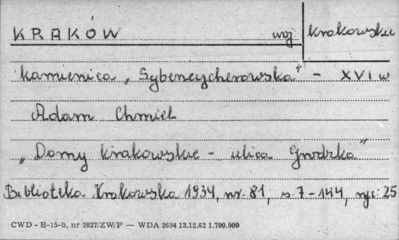 KRAKÓW woj. krakowskie
kamienica „Sybeneycherowska" - XVI w
Adam Chmiel
„Domy krakowskie - ulica Grodzka"
Biblioteka Krakowska 1934, nr. 81, s. 7-144, ryc. 25
CWD - B-15-b, nr 2827/ZW/P — WDA 2604 13.12.62 1.700.000